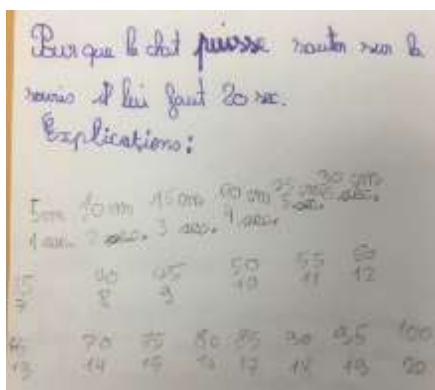 Pour que le chat puisse sauter sur la
souris il lui faut 20 sec.
Explications:
5cm 10cm 15cm 20cm 25cm 30cm
1 sec. 2 sec. 3 sec. 4 sec. 5 sec. 6 sec.
35 40 45 50 55 60
7 8 9 10 11 12
65 70 75 80 85 90 95 100
13 14 15 16 17 18 19 20